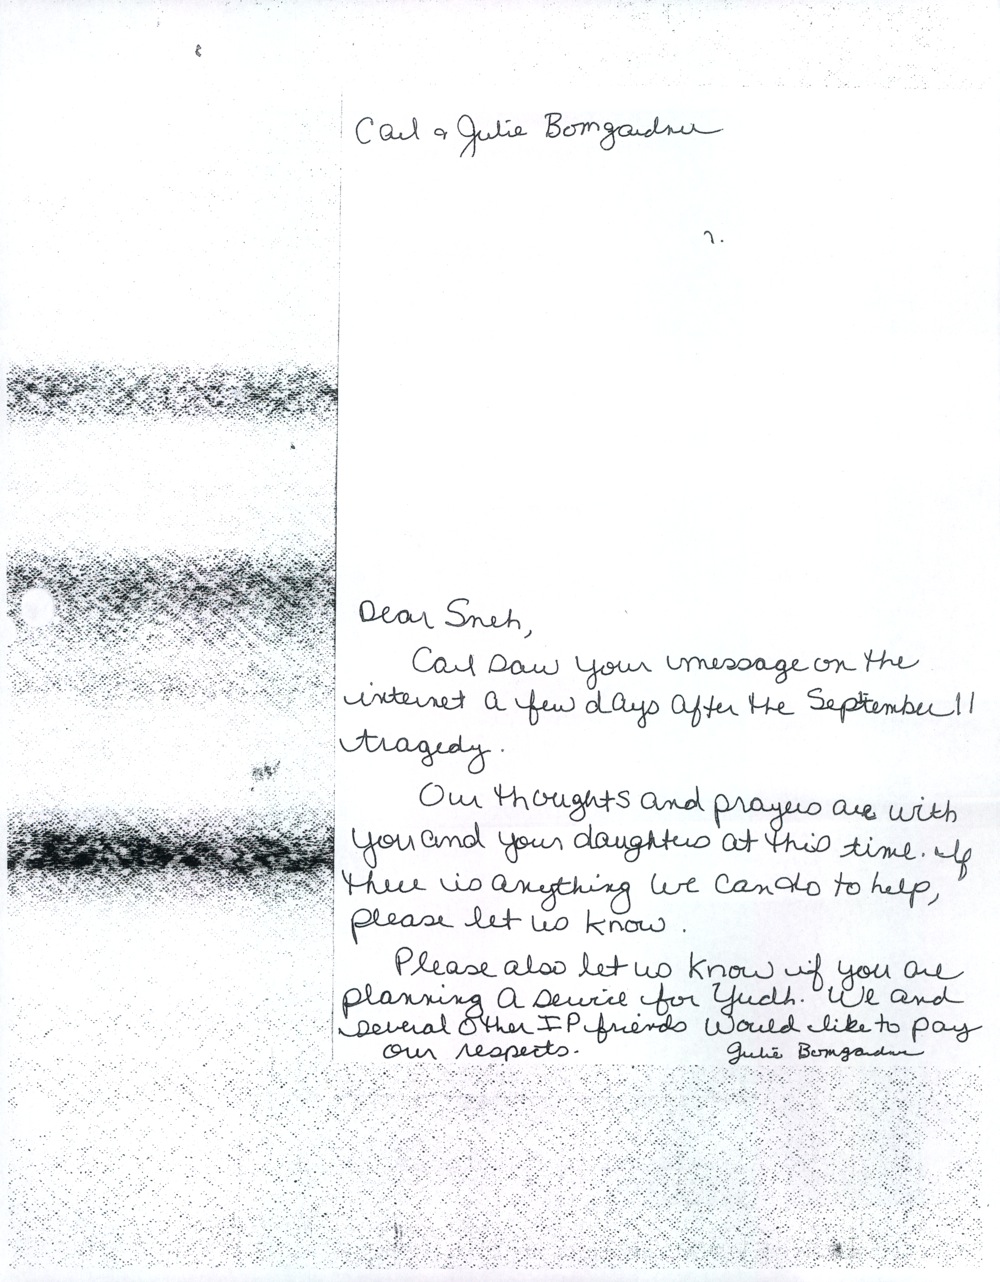 Carl & Julie Bomgardner
Dear Sneh,
Carl saw your message on the
internet a few days after the September 11
tragedy.
Our thoughts and prayers are with
you and your daughters at this time. If
there is anything we can do to help,
please let us know.
Please also let us know if you are
planning a service for Yudh. We and
several other IP friends would like to pay
our respects.
Julie Bomgardner